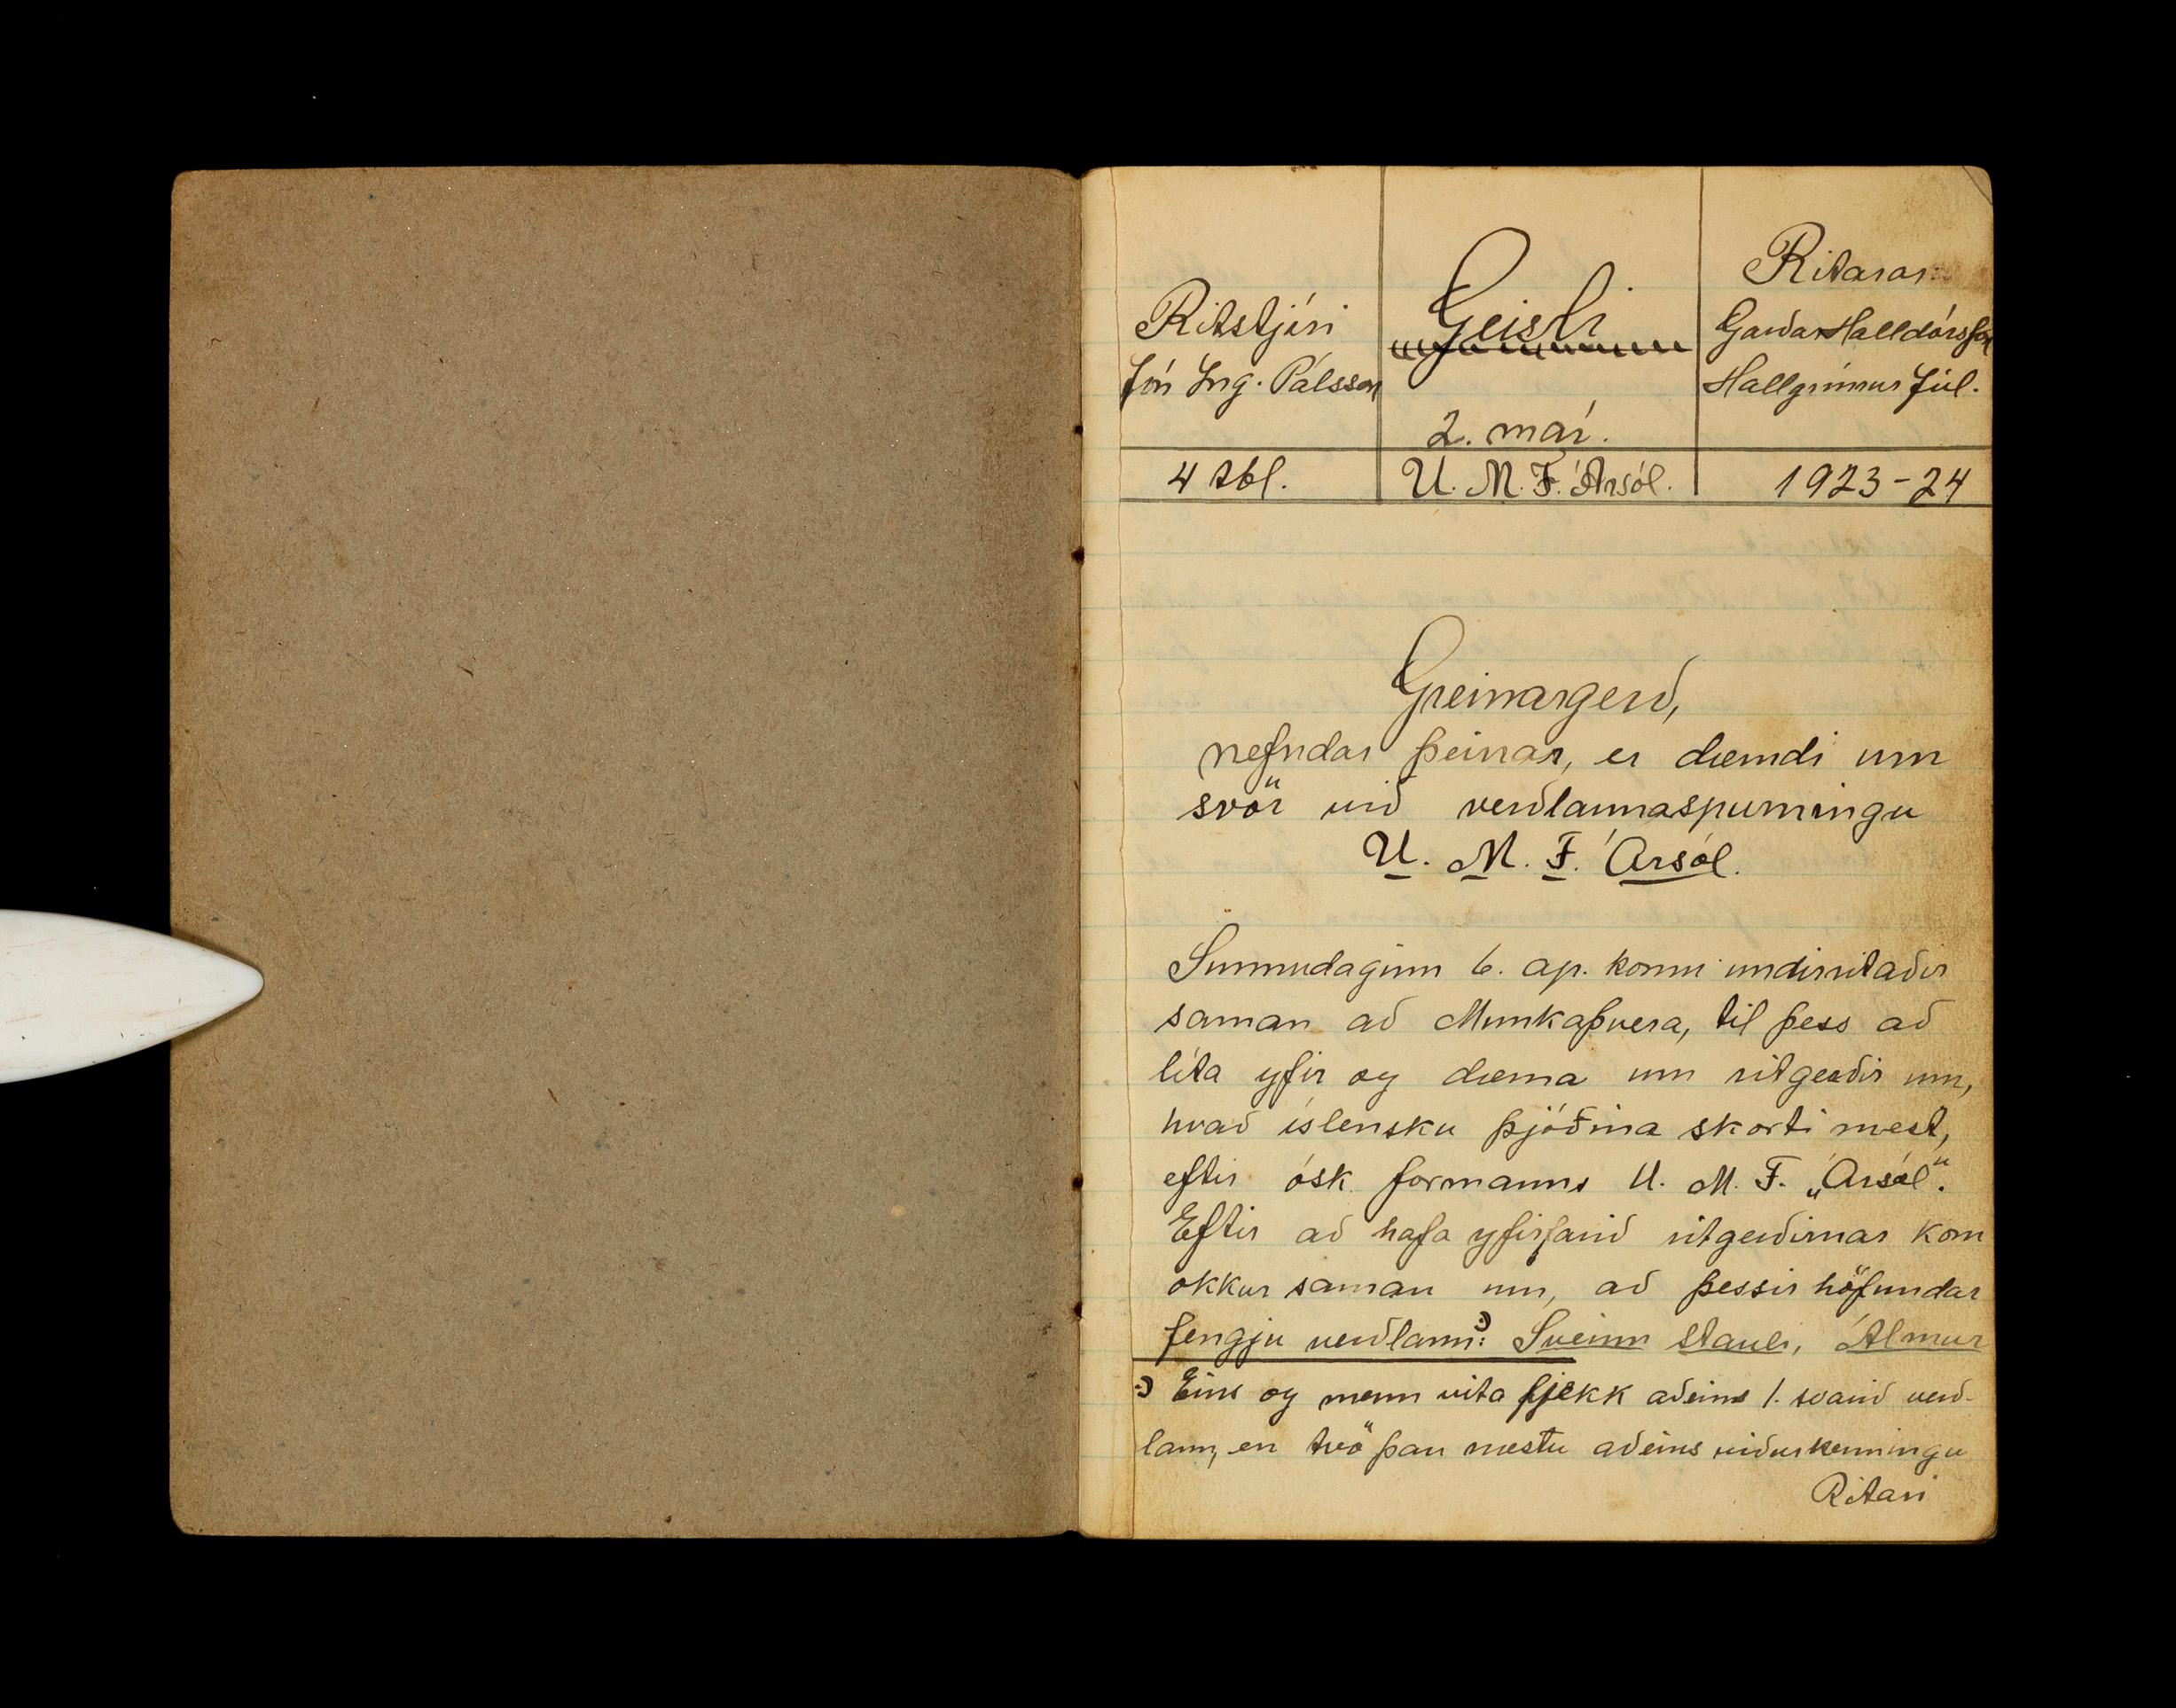 Ritstjóri
Jón Ing. Pálsson
Geisli
2. maí.
Ritarar:
Garðar Halldórsson
Hallgrímur Júl.
4 tbl.
U. M. F. Ársól.
1923-24
Greinargerð,
nefndar þeirrar, er dæmdi um
svör við verðlaunaspurningu
U. M. F. Ársól.
Sunnudaginn 6. ap. komu undirritaðir
saman að Munkaþvera, til þess að
líta yfir og dæma um ritgerðir um,
hvað íslensku þjóðina skorti mest,
eftir ósk formanns U. M. F. „Ársól“.
Eftir að hafa yfirfarið ritgerðirnar kom
okkur saman um, að þessir höfundar
fengju verðlaun:⁾: Sveinn stauli, Álmur
:) Eins og menn vita fjekk aðeins 1. svarið verð-
laun, en tvö þau næstu aðeins viðurkenningu
Ritari